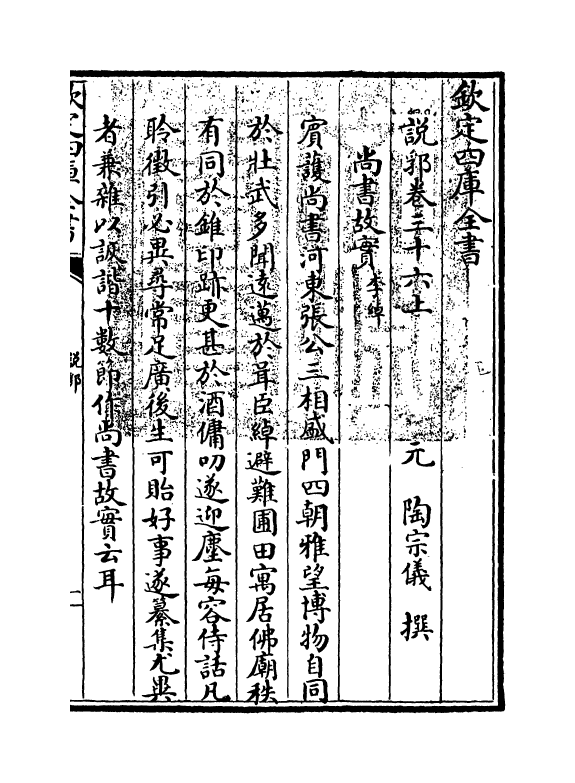 欽定四庫全書
說郛卷三十六上　元　陶宗儀　撰
尚書故實 李綽
賓護尚書河東張公三相盛門四朝雅望博物自同
於壯武多聞遠邁於胥臣綽避難圃田寓居佛廟秩
有同於錐印跡更甚於酒傭叨遂迎塵每容侍話凡
聆徵引必異尋常足廣後生可貽好事遂纂集尤異
者兼雜以詼諧十數節作尚書故實云耳
欽定四庫全書
說郛